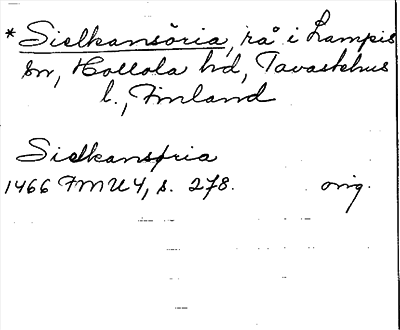 * Sielkansöria, rå i Lampis
sn, Hollola hd, Tavastehus
l., Finland
Sielkansøria
1466 FMU 4, s. 278. orig.